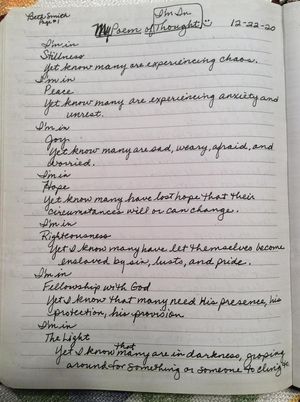 Beth Smith
Page #1
I'm In
My Poem of Thought
12-22-20
I'm in
Stillness
Yet know many are experiencing chaos.
I'm in
Peace
Yet know many are experiencing anxiety and
unrest.
I'm in
Joy
Yet know many are sad, weary, afraid, and
worried.
I'm in
Hope
Yet know many have lost hope that their
circumstances will or can change.
I'm in
Righteousness
Yet I know many have let themselves become
enslaved by sin, lusts, and pride.
I'm in
Fellowship with God
Yet I know that many need His presence, his
protection, his provision
I'm in
The Light
Yet I know that many are in darkness, groping
around for something or someone to cling to